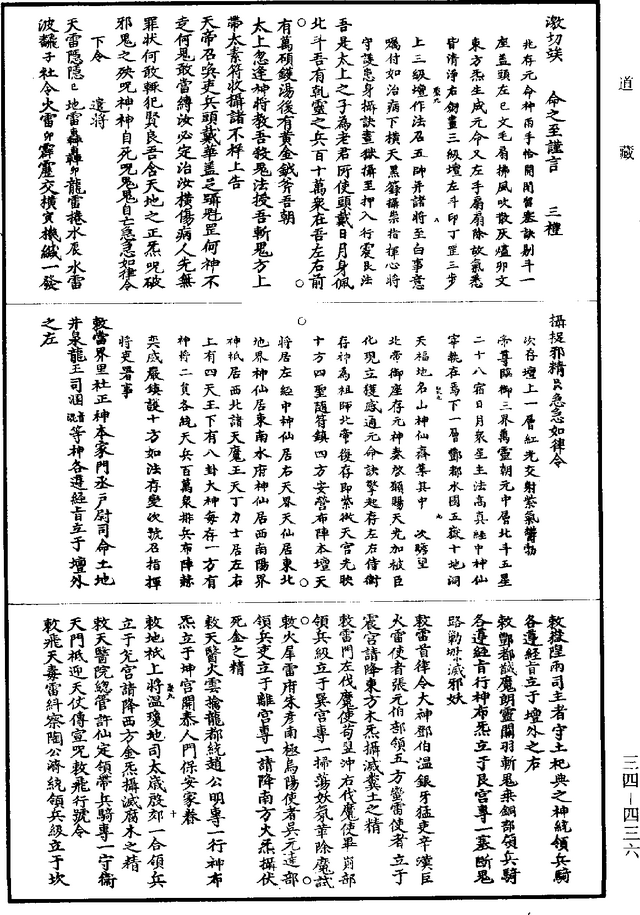 道藏
激切竢　命之至謹言　三禮
北存元命神兩手恰開閉留塞訣剔斗一
座蓋頭左巳文毛扇拂風吹散灰爐卯文
東方炁生成元命又左手扇扇除故氣悉
皆清淨右劍畫三級壇左斗印丁罡三步
上三級壇作法召五帥并諸將至白事意
囑付如治病下橫天黑籙攝祟指揮心將
守護患身攝訣畫獄攝至押入行靈艮法
吾是太上之子為老君所使頭戴日月身佩
北斗吾有乾靈之兵百十萬衆在吾左右前
有萬碩鑊湯後有黃金鉞斧吾朝
太上忽逢神將教吾殺鬼法授吾斬鬼方上
帶太素符收攝諸不祥上告
天帝召喚吏兵頭戴華蓋足躡魁罡何神不
走何鬼敢當縛汝必定治汝橫傷病人先無
罪狀何敢輒犯賢良吾含天地之正炁呪破
邪鬼之殃呪神神自死呪鬼鬼自亡急急如律令
下令　遣將
天雷隱隱巳地雷轟轟卯龍雷捲水辰水雷
波飜子社令火雷卯霹靂交橫寅機緘一發
攝捉邪精艮急急如律令
次存壇上一層紅光交射紫氣鬱勃
帝尊臨御三界萬靈朝元中層北斗五星
二十八宿日月衆星主法高真經中神仙
宰執在焉下一層酆都水國五嶽十地洞
天福地名山神仙齋筵其中　次瞻望
北帝御座存元神奏啓願賜天光加被臣
化現立獲感通元命訣擎起存左右侍衛
存神為祖師北帝後存即紫微天宮光映
十方四聖隨符鎮四方安營布陣本壇天
將居左經中神仙居右天界天仙居東北
地界神仙居東南水府神仙居西南陽界
神祇居西北諸天魔王天丁力士居左右
上有四天王下有八卦大神每存一方有
神將二負各統天兵百萬衆排兵布陣赫
奕威嚴鎮談十方如法存變次號召指揮
將吏署事
敕當界里社正神本家門丞戶尉司命土地
井泉龍王司溷等神各遵經旨立于壇外
之左
敕嶽隍兩司主者守土祀典之神統領兵騎
各遵經旨立于壇外之右
敕酆都馘魔朗靈關羽斬鬼乘銅部領兵騎
各遵經旨行神布炁立于艮宮專一塞斷鬼
路勦滅邪妖
敕雷首律令大神鄧伯溫銀牙猛吏辛漢臣
火雷使者張元伯部領五方蠻雷使者立于
震宮請降東方木炁攝滅糞土之精
敕雷門左伐魔使苟呈沖右伐魔使畢岡部
領兵級立于巽宮專一掃蕩妖氛華除魔試
敕火犀雷府朱彥南極烏陽使者吳元達部
領兵吏立于離宮專一請降南方火炁攝伏
死金之精
敕天醫火雲擒龍都統趙公明專一行神布
炁立于坤宮開泰人門保安家眷
敕地祇上將溫瓊地司太歲殷郊一合領兵
立于兌宮請降西方金炁攝滅腐木之精
敕天醫院總管許仙定領帶兵騎專一守衛
天門祗迎天仗傳宣呪敕飛行號令
敕飛天毒雷糾察陶公濟統領兵級立于坎
三四—四三六